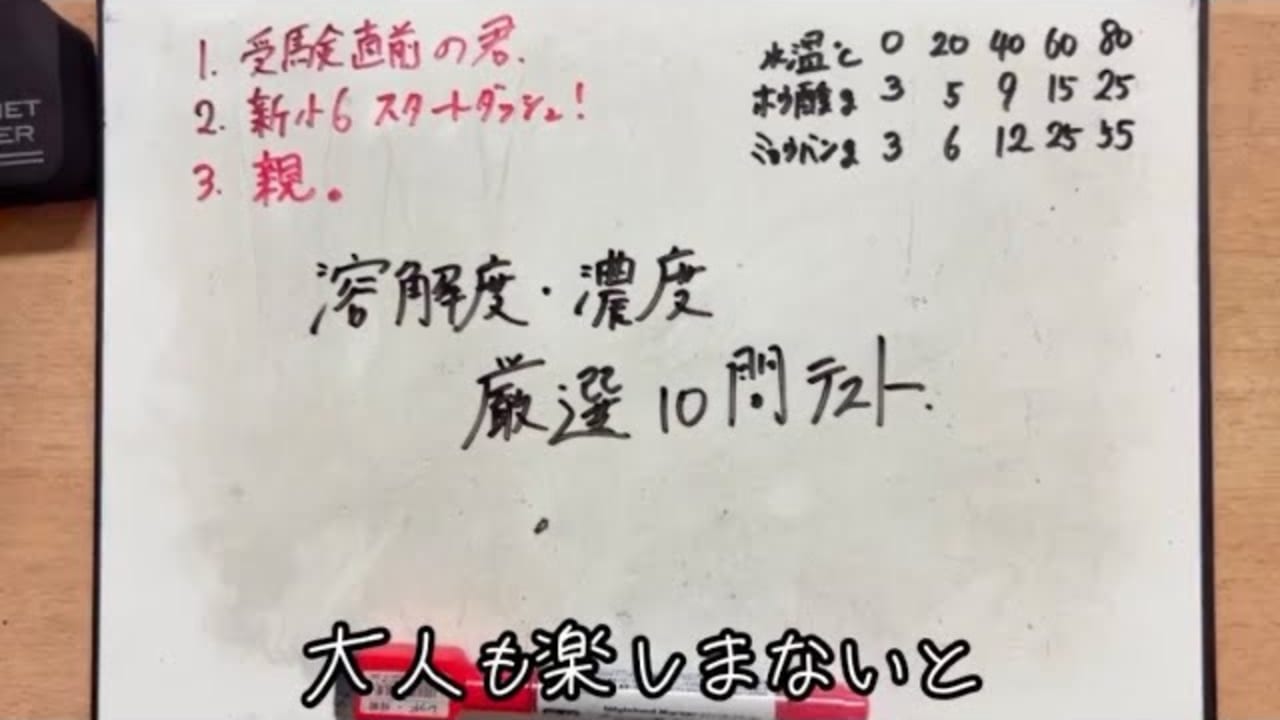 1. 受験直前の君.
2. 新小6 スタートダッシュ!
3. 親。
水温℃ 0 20 40 60 80
ホウ酸g 3 5 9 15 25
ミョウバンg 3 6 12 25 55
溶解度・濃度
厳選10問テスト.
大人も楽しまないと